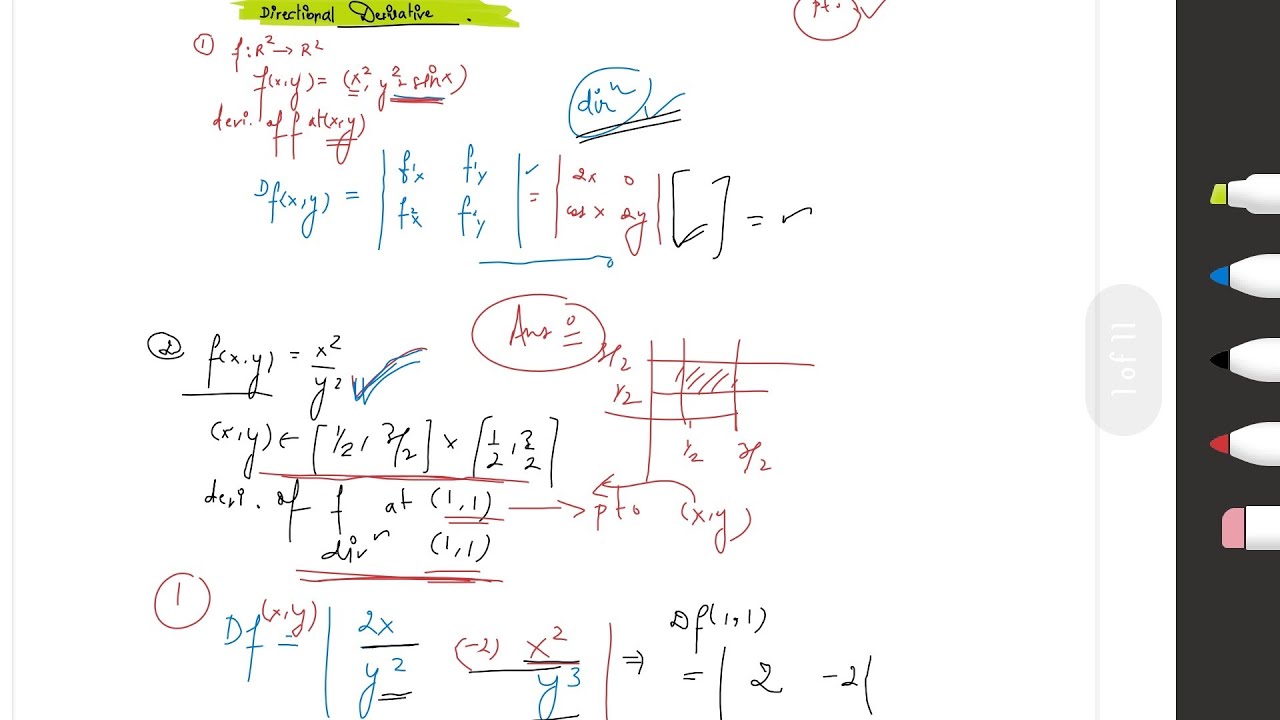 Directional Derivative.
pt.
① f: R² → R²
f(x,y) = (x², y² + sin x)
deri. of f at (x,y)
dirⁿ
Df(x,y) = | f¹x f¹y | = | 2x 0 | [ ] =
| f²x f²y | | cos x 2y |
Ans:
② f(x,y) = x²/y²
3/2
1/2
1/2 3/2
(x,y) ∈ [1/2, 3/2] × [1/2, 3/2]
deri. of f at (1,1) → pt. (x,y)
dirⁿ (1,1)
①
Df(x,y) | 2x/y² (-2) x²/y³ | ⇒ Df(1,1)
= | 2 -2 |
1 of 11